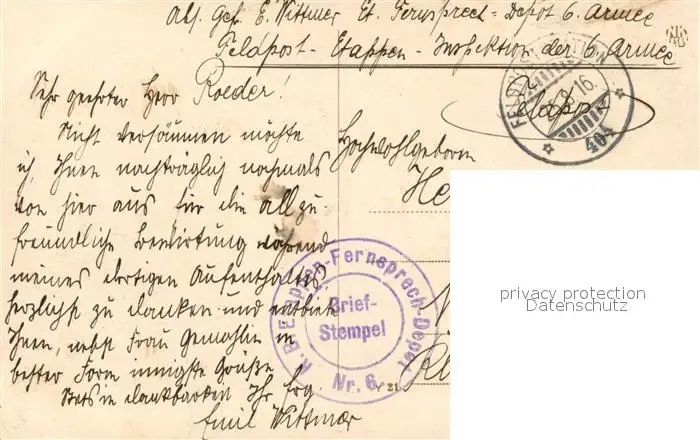 Abs. Gef. E. Wittmer Et. Fernsprech-Depot 6. Armee
Feldpost-Etappen-Inspektion der 6. Armee
Feldp.
16.
404
Sehr geehrter Herr Roeder!
Nicht versäumen möchte
ich, Ihnen nachträglich nochmals
von hier aus für die allzu-
freundliche Bewirtung während
meines dortigen Aufenthaltes
herzlichst zu danken und entbiete
Ihnen, nebst Frau Gemahlin in
bester Form innigste Grüße
Stets in dankbarken Ihr erg.
Emil Wittmer
Hochwohlgeboren
He
K. B. Etappen-Fernsprech-Depot
Brief-
Stempel
Nr. 6
21
privacy protection
Datenschutz